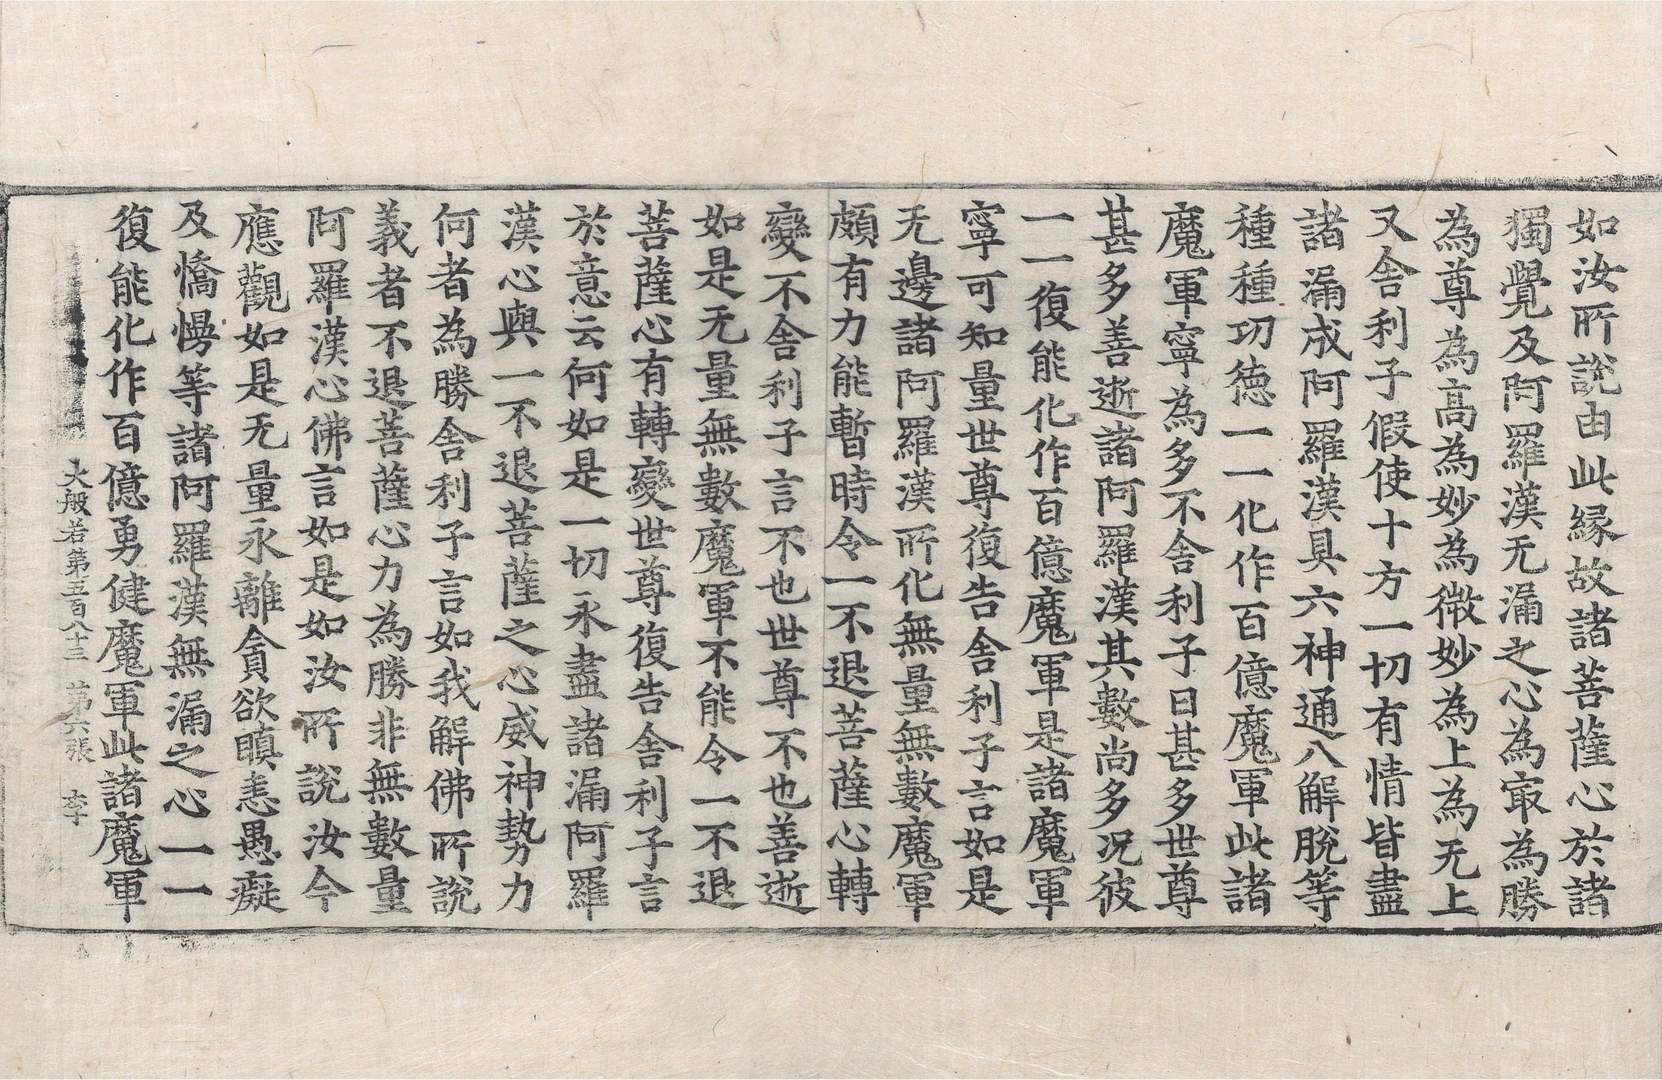 如汝所說由此縁故諸菩薩心於諸
獨覺及阿羅漢无漏之心為冣為勝
為尊為高為妙為微妙為上為无上
又舍利子假使十方一切有情皆盡
諸漏成阿羅漢具六神通八解脫等
種種功德一一化作百億魔軍此諸
魔軍寧為多不舍利子曰甚多世尊
甚多善逝諸阿羅漢其數尚多況彼
一一復能化作百億魔軍是諸魔軍
寧可知量世尊復告舍利子言如是
无邊諸阿羅漢所化無量無數魔軍
頗有力能暫時令一不退菩薩心轉
變不舍利子言不也世尊不也善逝
如是无量無數魔軍不能令一不退
菩薩心有轉變世尊復告舍利子言
於意云何如是一切永盡諸漏阿羅
漢心與一不退菩薩之心威神勢力
何者為勝舍利子言如我解佛所說
義者不退菩薩心力為勝非無數量
阿羅漢心佛言如是如汝所說汝今
應觀如是无量永離貪欲瞋恚愚癡
及憍慢等諸阿羅漢無漏之心一一
復能化作百億勇健魔軍此諸魔軍
大般若第五百八十三　第六張　李